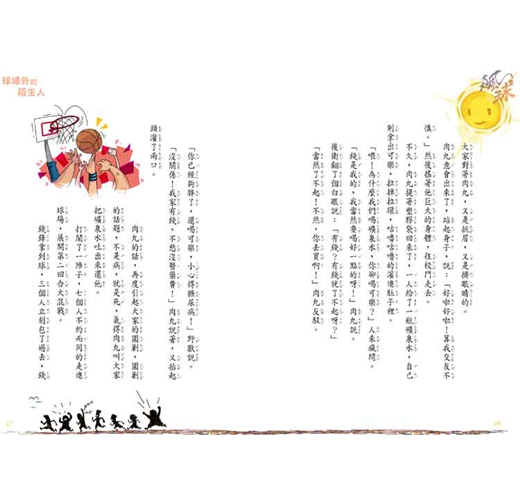 球
大家對著肉丸，又是挑眉，又是擠眼睛的。
肉丸意會出來了，站起身子，說：「好啦好啦！算我交友不
慎。」然後搖著他巨大的身體，往校門走去。
不久，肉丸提著塑膠袋回來了，一人給了一瓶礦泉水，自己
則拿出可樂，拉掉拉環，咕嚕咕嚕的灌進肚子裡。
「喂！為什麼我們喝礦泉水，你卻喝可樂？」人來瘋問。
「錢是我的，我當然要喝好一點的呀！」肉丸說。
後衛翻了個白眼說：「有錢？有錢就了不起呀？」
「當然了不起！不然，你去買啊！」肉丸反駁。
16
球場外的
陌生人
「你已經夠胖了，還喝可樂，小心得糖尿病！」野歌說。
「沒關係！我家有錢，不愁沒醫藥費！」肉丸說著，又抬起
頭灌了兩口。
肉丸的話，再度引起大家的圍剿，圍剿
的話題，不是病，就是死，氣得肉丸叫大家
把礦泉水吐出來還他。
打鬧了一陣子，七個人不約而同的走進
球場，展開第二回合大混戰。
錢鋒拿到球，三個人立刻包了過去，錢
17